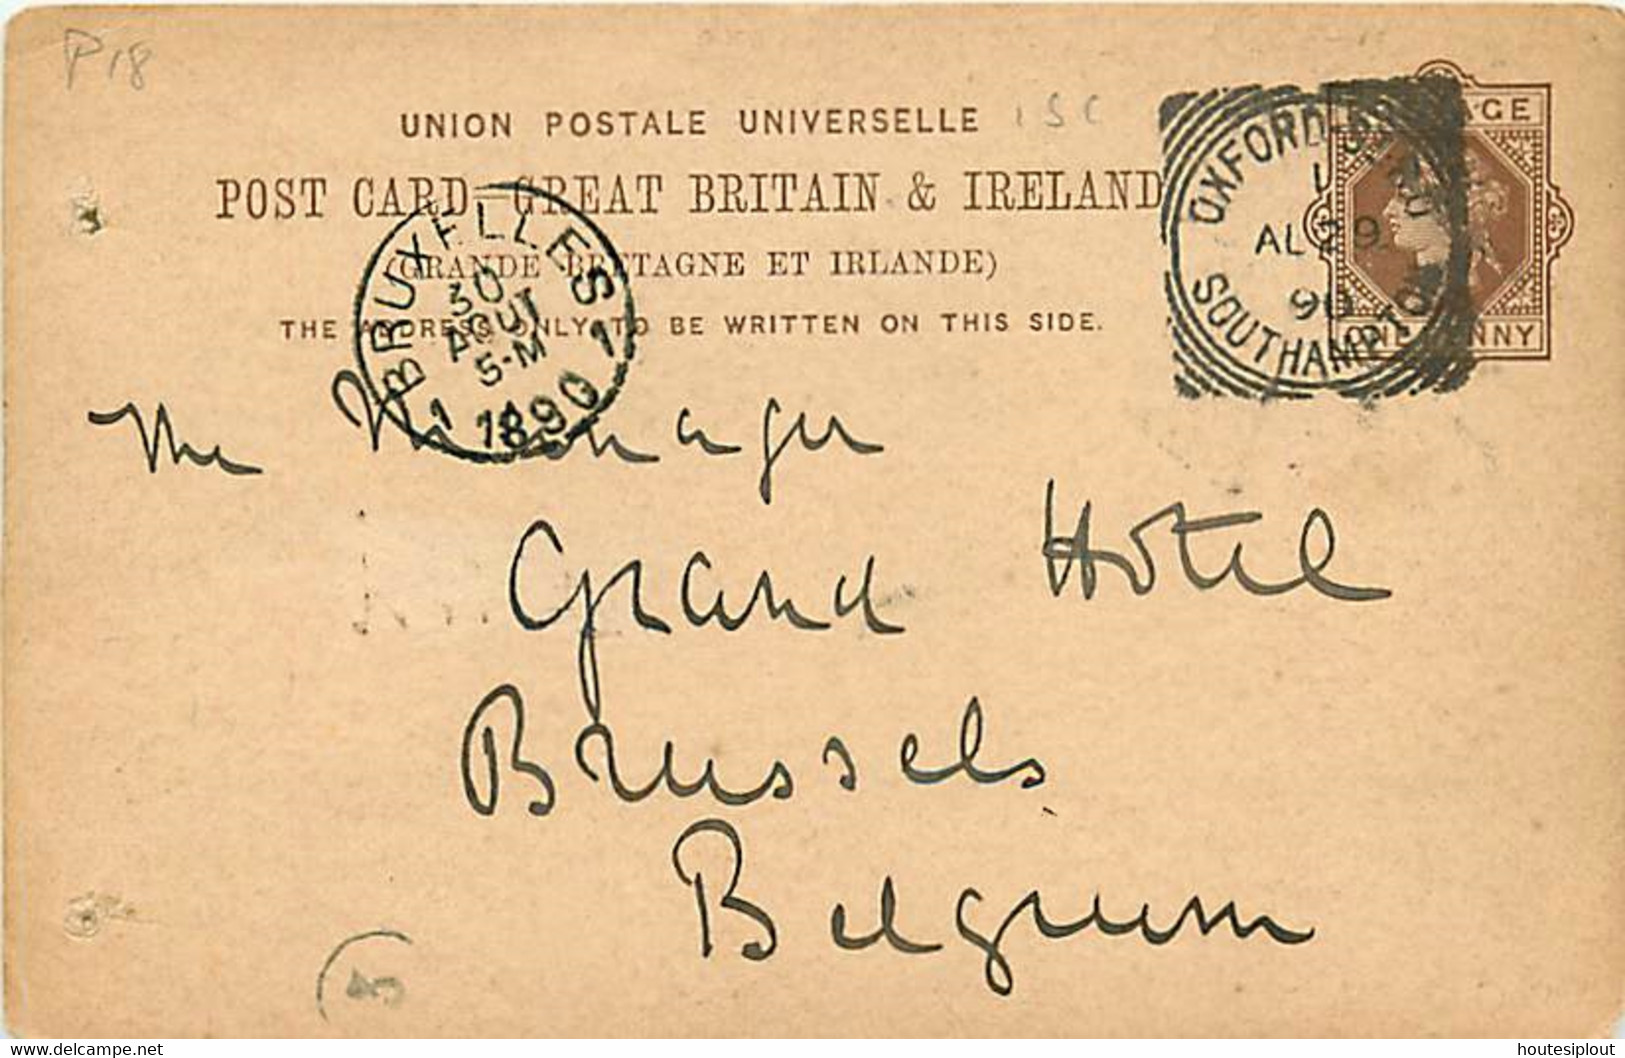 P18
UNION POSTALE UNIVERSELLE
1 S C
POST CARD–GREAT BRITAIN & IRELAND
(GRANDE BRETAGNE ET IRLANDE)
THE ADDRESS ONLY TO BE WRITTEN ON THIS SIDE.
BRUXELLES
30
AOUT
5-M
1 1890 1
OXFORD
1
AU 29
90
SOUTHAMPTON
ONE PENNY
The Manager
Grand Hotel
Brussels
Belgium
delcampe.net
houtesiplout